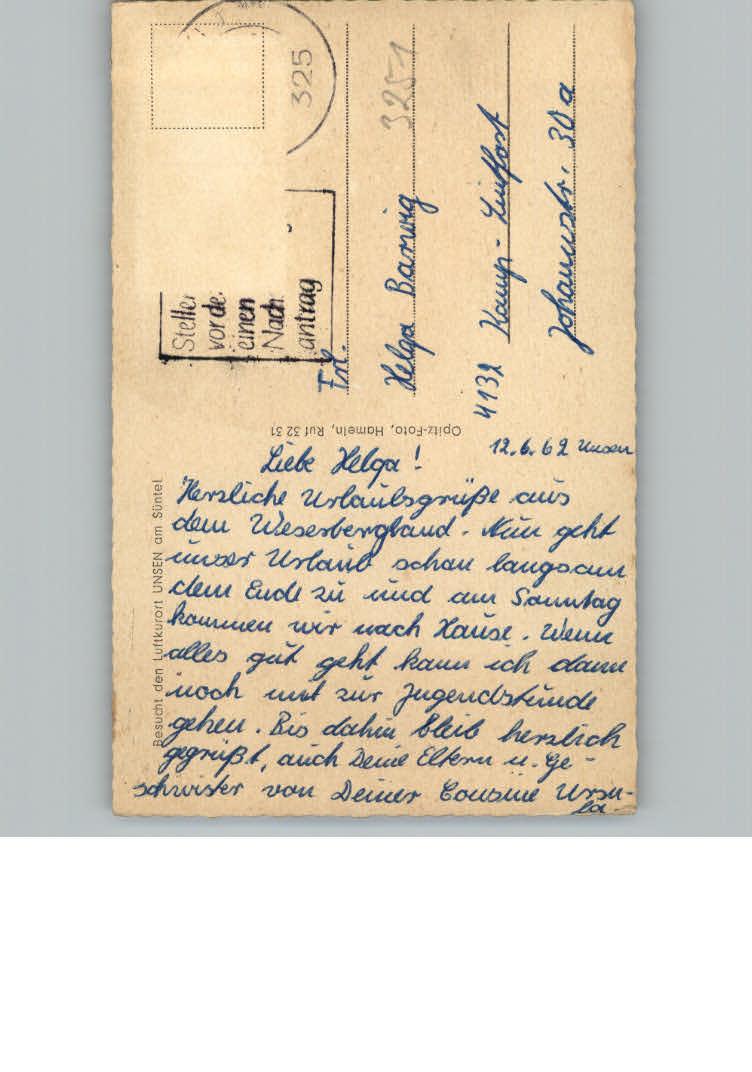 325
3251
Stelle
vor de
einen
Nach
antrag
Frl.
Helga Barwig
4132 Kamp-Lintfort
Johannstr. 30a
Opitz-Foto, Hameln, Ruf 32 31
Besucht den Luftkurort UNSEN am Süntel
12.6.62 Unsen
Liebe Helga!
Herzliche Urlaubsgrüße aus
dem Weserbergland. Nun geht
unser Urlaub schon langsam
dem Ende zu und am Sonntag
kommen wir nach Hause. Wenn
alles gut geht kann ich dann
noch mit zur Jugendstunde
gehen. Bis dahin bleib herzlich
gegrüßt, auch Deine Eltern u. Ge-
schwister von Deiner Cousine Ursu-
la.